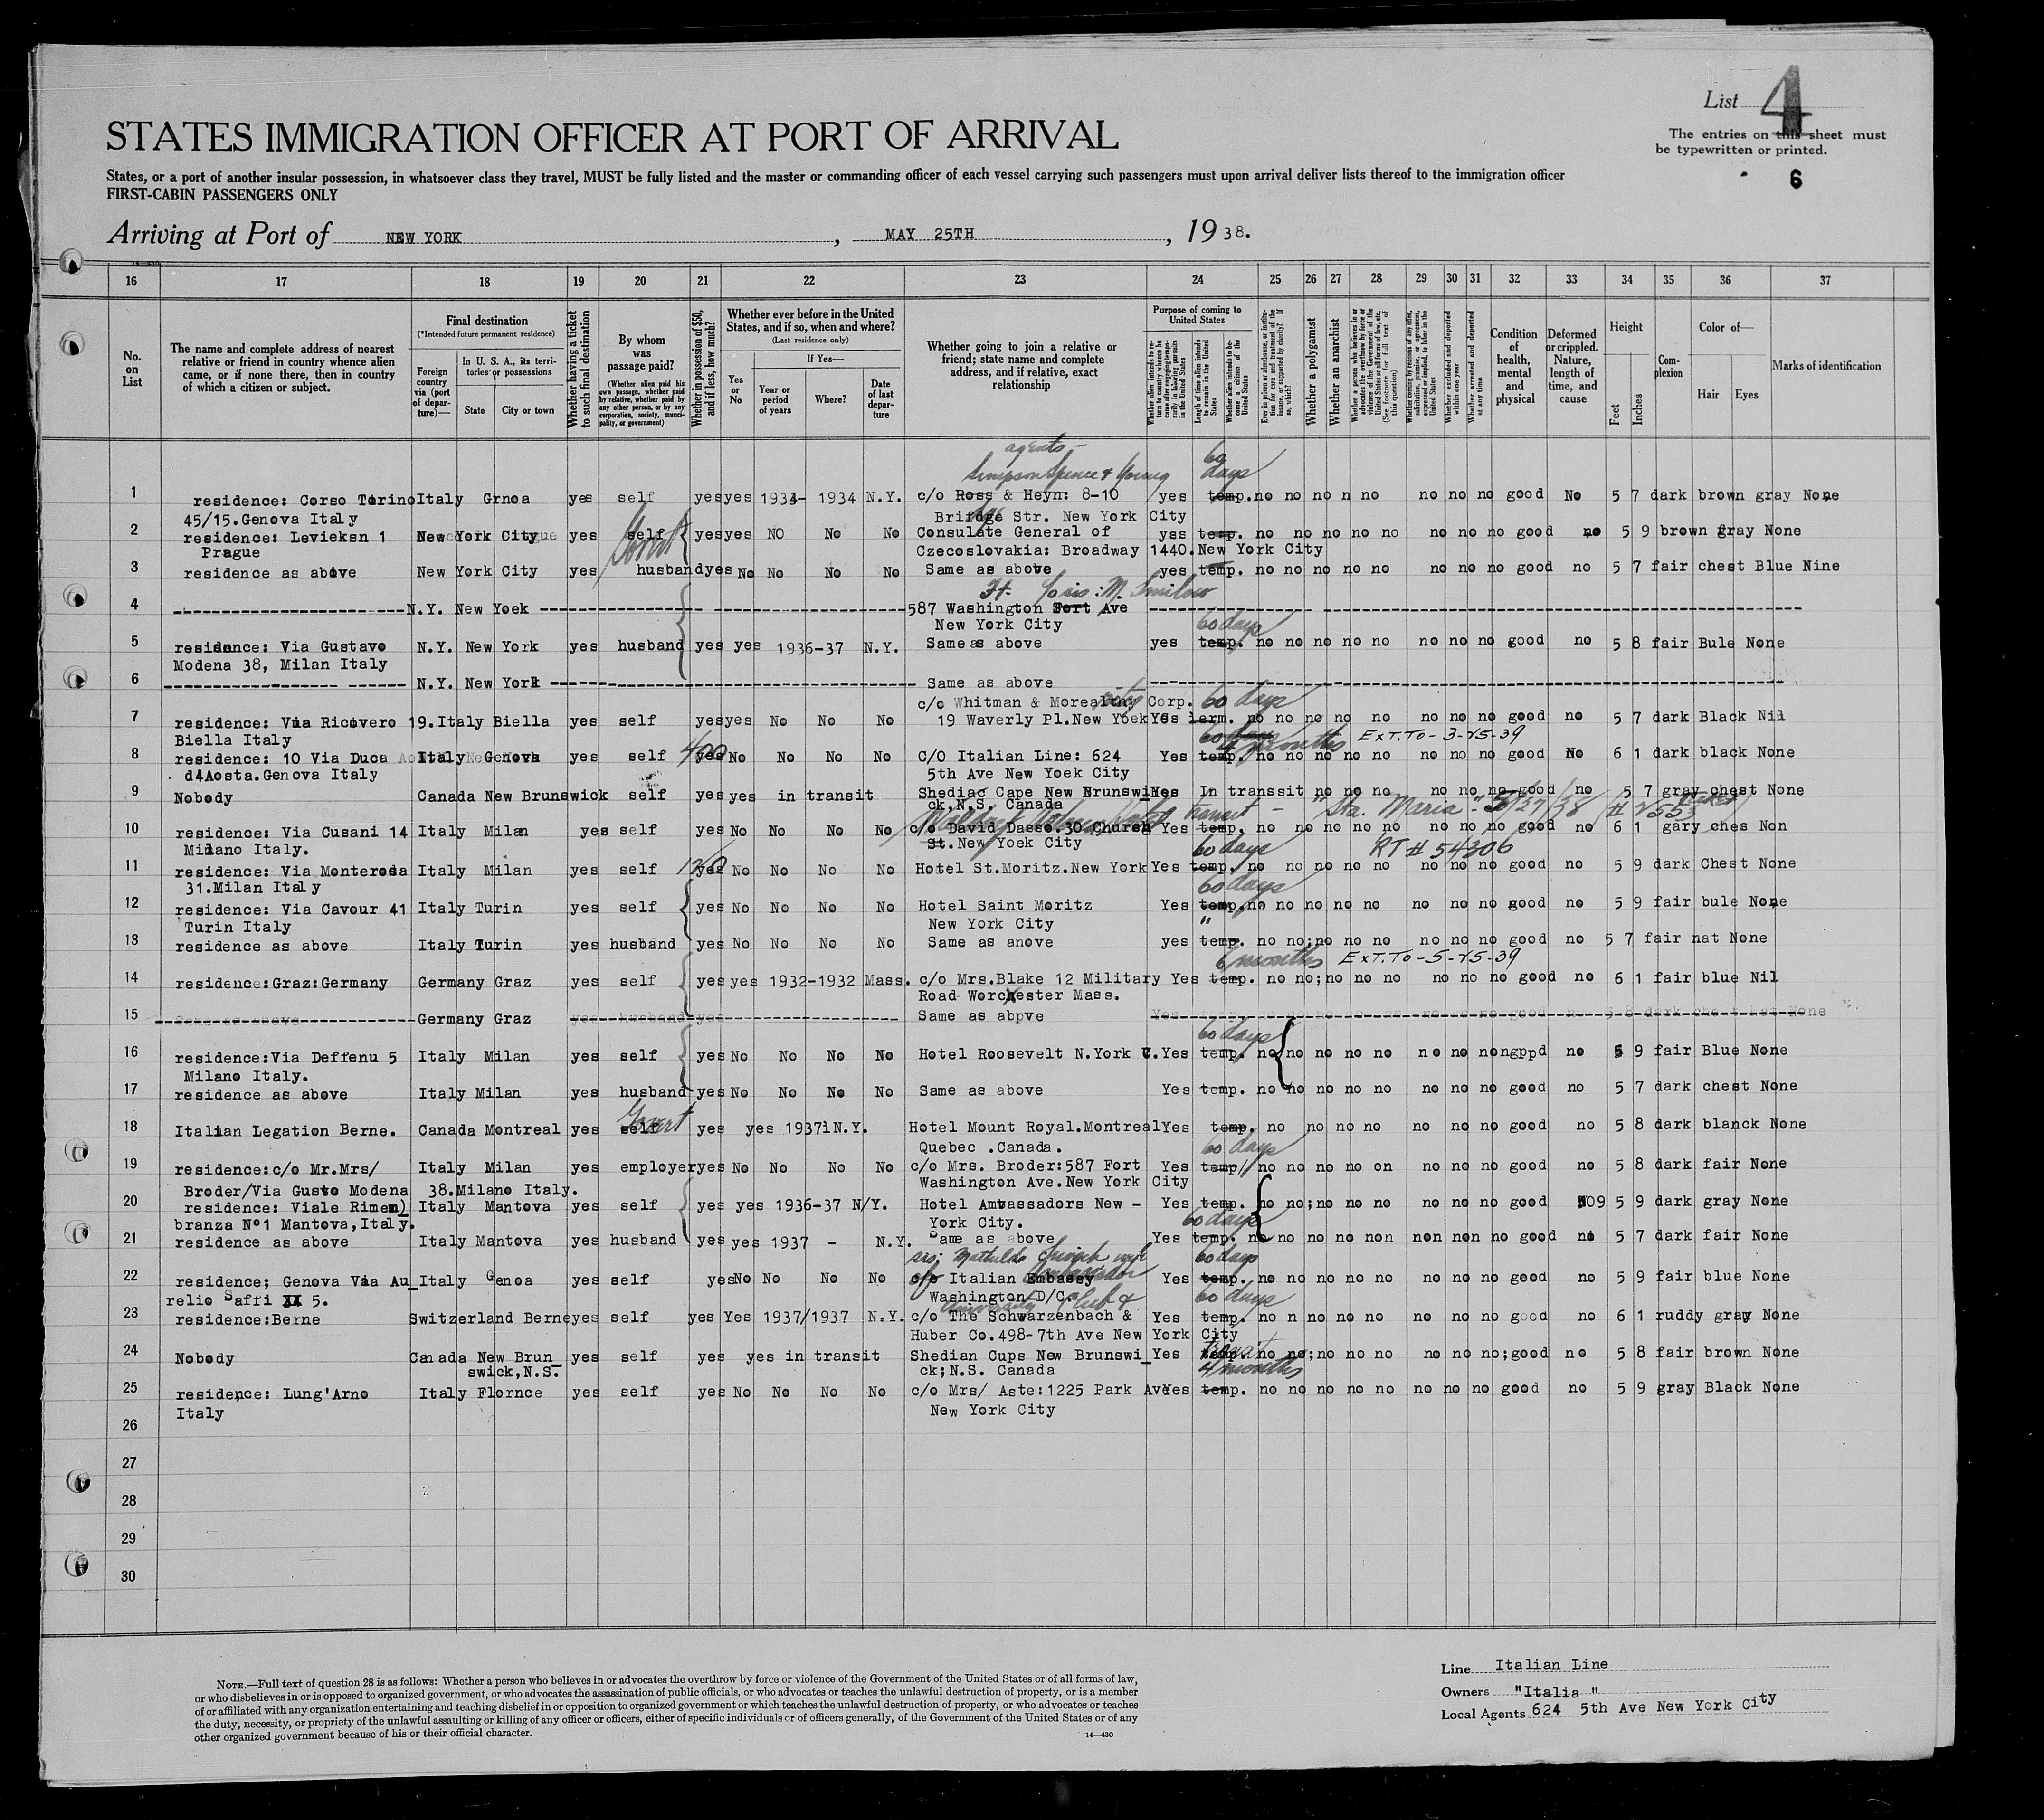 List 4
STATES IMMIGRATION OFFICER AT PORT OF ARRIVAL
The entries on this sheet must
be typewritten or printed.
States, or a port of another insular possession, in whatsoever class they travel, MUST be fully listed and the master or commanding officer of each vessel carrying such passengers must upon arrival deliver lists thereof to the immigration officer
FIRST-CABIN PASSENGERS ONLY
6
Arriving at Port of NEW YORK , MAY 25TH , 1938.
16 17 18 19 20 21 22 23 24 25 26 27 28 29 30 31 32 33 34 35 36 37
No. on List
The name and complete address of nearest relative or friend in country whence alien came, or if none there, then in country of which a citizen or subject.
Final destination
(*Intended future permanent residence)
Foreign country via (port of departure)—
In U. S. A., its territories or possessions
State
City or town
Whether having a ticket to such final destination
By whom was passage paid?
(Whether alien paid his own passage, whether paid by relative, whether paid by any other person, or by any corporation, society, municipality, or government)
Whether in possession of $50, and if less, how much?
Whether ever before in the United States, and if so, when and where?
(Last residence only)
Yes or No
If Yes—
Year or period of years
Where?
Date of last departure
Whether going to join a relative or friend; state name and complete address, and if relative, exact relationship
Purpose of coming to United States
Whether alien intends to return to country whence he came after engaging temporarily in laboring pursuits in the United States
Length of time alien intends to remain in the United States
Whether alien intends to become a citizen of the United States
Ever in prison or almshouse, or institution for care and treatment of the insane, or supported by charity? If so, which?
Whether a polygamist
Whether an anarchist
Whether a person who believes in or advocates the overthrow by force or violence of the Government of the United States or all forms of law, etc. (See footnote for full text of this question)
Whether coming by reasons of any offer, solicitation, promise, or agreement, expressed or implied, to labor in the United States
Whether excluded and deported within one year
Whether arrested and deported at any time
Condition of health, mental and physical
Deformed or crippled. Nature, length of time, and cause
Height
Feet
Inches
Complexion
Color of—
Hair
Eyes
Marks of identification
agents—
Simpson Spence & Young 60 days
1 residence: Corso Torino Italy Grnoa yes self yes yes 1934- 1934 N.Y. c/o Ross & Heyn: 8-10 yes temp. no no no n no no no no good No 5 7 dark brown gray None
45/15.Genova Italy Briidge Str. New York City
2 residence: Levieksn 1 New York City yes self yes yes NO No No Consulate General of yss temp. no no no no no no no no good no 5 9 brown gray None
Prague Govnt Czecoslovakia: Broadway 1440.New York City
3 residence as above New York City yes husband yes No No No No Same as above yes temp. no no no no no no no no good no 5 7 fair chest Blue Nine
4 N.Y. New Yoek 587 Washington Fort Ave
Ft.
New York City 60 days
5 residance: Via Gustavo N.Y. New York yes husband yes yes 1936-37 N.Y. Same as above yes temp. no no no no no no no no good no 5 8 fair Bule None
Modena 38, Milan Italy
6 N.Y. New York Same as above
c/o Whitman & Morealtmy Corp. 60 days
7 residence: Via Ricovero 19.Italy Biella yes self yes yes No No No 19 Waverly Pl.New Yoek Yes term. no no no no no no no no good no 5 7 dark Black Nil
Biella Italy 60 days 4 months EXT. TO - 3-25-39
8 residence: 10 Via Duca Italy Genova yes self 400 yes No No No No C/O Italian Line: 624 Yes temp. no no no no no no no no good No 6 1 dark black None
d4Aosta.Genova Italy 5th Ave New Yoek City
9 Nobody Canada New Brunswick self yes yes in transit Shediac Cape New Brunswi Yes In transsit no no no no no no good no 5 7 gray chest None
ck,N.S. Canada transit - "Sta. Maria" 5/27/38
10 residence: Via Cusani 14 Italy Milan yes self yes No No No No c/o David Dasso.30 Church Yes temp. no no no no no no no no good no 6 1 gary ches Non
Milano Italy. St.New Yoek City 60 days RT # 54306
11 residence: Via Monterosa Italy Milan yes self 120 yes No No No No Hotel St.Moritz.New York Yes temp. no no no no no no no no good no 5 9 dark Chest None
31.Milan Italy 60 days
12 residence: Via Cavour 41 Italy Turin yes self yes No No No No Hotel Saint Moritz Yes temp. no no no no no no no no good no 5 9 fair bule None
Turin Italy New York City "
13 residence as above Italy Turin yes husband yes No No No No Same as anove yes temp. no no;no no no no no no good no 5 7 fair nat None
6 months EXT. TO - 5-25-39
14 residence:Graz:Germany Germany Graz yes self yes yes 1932-1932 Mass. c/o Mrs.Blake 12 Military Yes temp. no no;no no no no no no good no 6 1 fair blue Nil
Road Worchester Mass.
15 Germany Graz Same as abpve
60 days
16 residence:Via Deffenu 5 Italy Milan yes self yes No No No No Hotel Roosevelt N.York C. Yes temp. no no no no no no no nongppd no 5 9 fair Blue None
Milano Italy.
17 residence as above Italy Milan yes husband yes No No No No Same as above Yes temp. no no no no no no no no good no 5 7 dark chest None
Govert
18 Italian Legation Berne. Canada Montreal yes self yes yes 1937 N.Y. Hotel Mount Royal.Montreal Yes temp. no no no no no no no good no 5 8 dark blanck None
Quebec .Canada. 60 days
19 residence:c/o Mr.Mrs/ Italy Milan yes employer yes No No No No c/o Mrs. Broder:587 Fort Yes temp no no no no on no no no good no 5 8 dark fair None
Broder/Via Gusto Modena 38.Milano Italy. Washington Ave.New York City
20 residence: Viale Rimem) Italy Mantova yes self yes yes 1936-37 N/Y. Hotel Ambassadors New - Yes temp. no no;no no no no no no good NO9 5 9 dark gray None
branza No1 Mantova,Italy. York City. 60 days
21 residence as above Italy Mantova yes husband yes yes 1937 - N.Y. Same as above Yes temp. no no no no non non non no good no 5 7 dark fair None
60 days
22 residence; Genova Via Au_ Italy Genoa yes self yes No No No No c/o Italian Embassy Yes temp. no no no no no no no no good no 5 9 fair blue None
relio Saffi 5. Washington D/C. 60 days
University Club &
23 residence:Berne Switzerland Berne yes self yes Yes 1937/1937 N.Y. c/o The Schwarzenbach & Yes temp. no n no no no no no no good no 6 1 ruddy gray None
Huber Co.498-7th Ave New York City
transit
24 Nobody Canada New Brun_ yes self yes yes in transit Shedian Cups New Brunswi_ Yes temp. no no;no no no no no no;good no 5 8 fair brown None
swick,N.S. ck;N.S. Canada 4 months
25 residence: Lung'Arno Italy Flornce yes self yes No No No No c/o Mrs/ Aste:1225 Park Ave Yes temp. no no no no no no no no good no 5 9 gray Black None
Italy New York City
26
27
28
29
30
NOTE.—Full text of question 28 is as follows: Whether a person who believes in or advocates the overthrow by force or violence of the Government of the United States or of all forms of law,
or who disbelieves in or is opposed to organized government, or who advocates the assassination of public officials, or who advocates or teaches the unlawful destruction of property, or is a member
of or affiliated with any organization entertaining and teaching disbelief in or opposition to organized government or which teaches the unlawful destruction of property, or who advocates or teaches
the duty, necessity, or propriety of the unlawful assaulting or killing of any officer or officers, either of specific individuals or of officers generally, of the Government of the United States or of any
other organized government because of his or their official character.
14—430
Line Italian Line
Owners "Italia "
Local Agents 624 5th Ave New York City